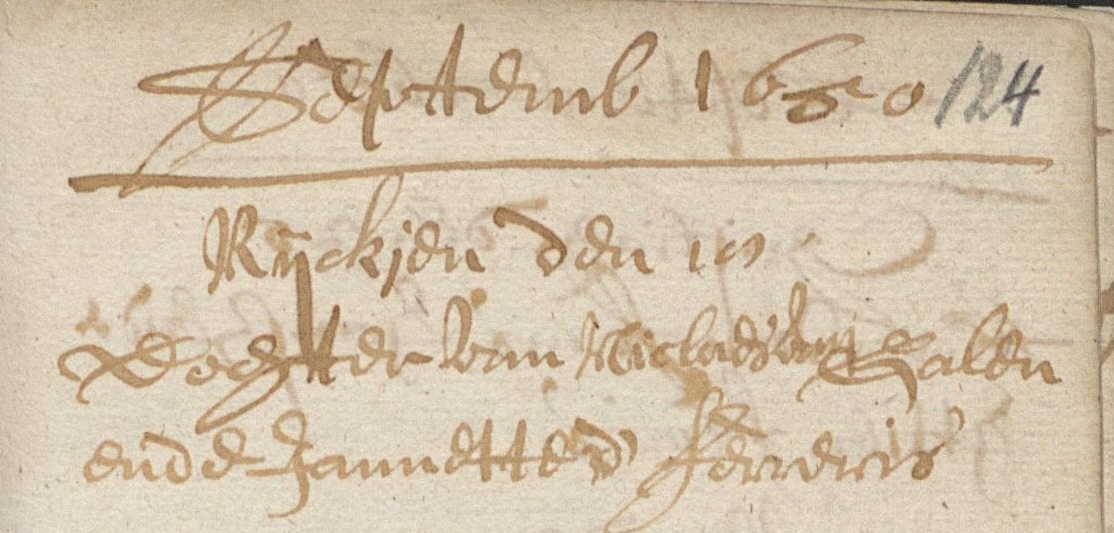 Septemb 1650 124
Rÿckjen den 10
Dochter van Niclaes van Halen
ende Jannette Ferreris